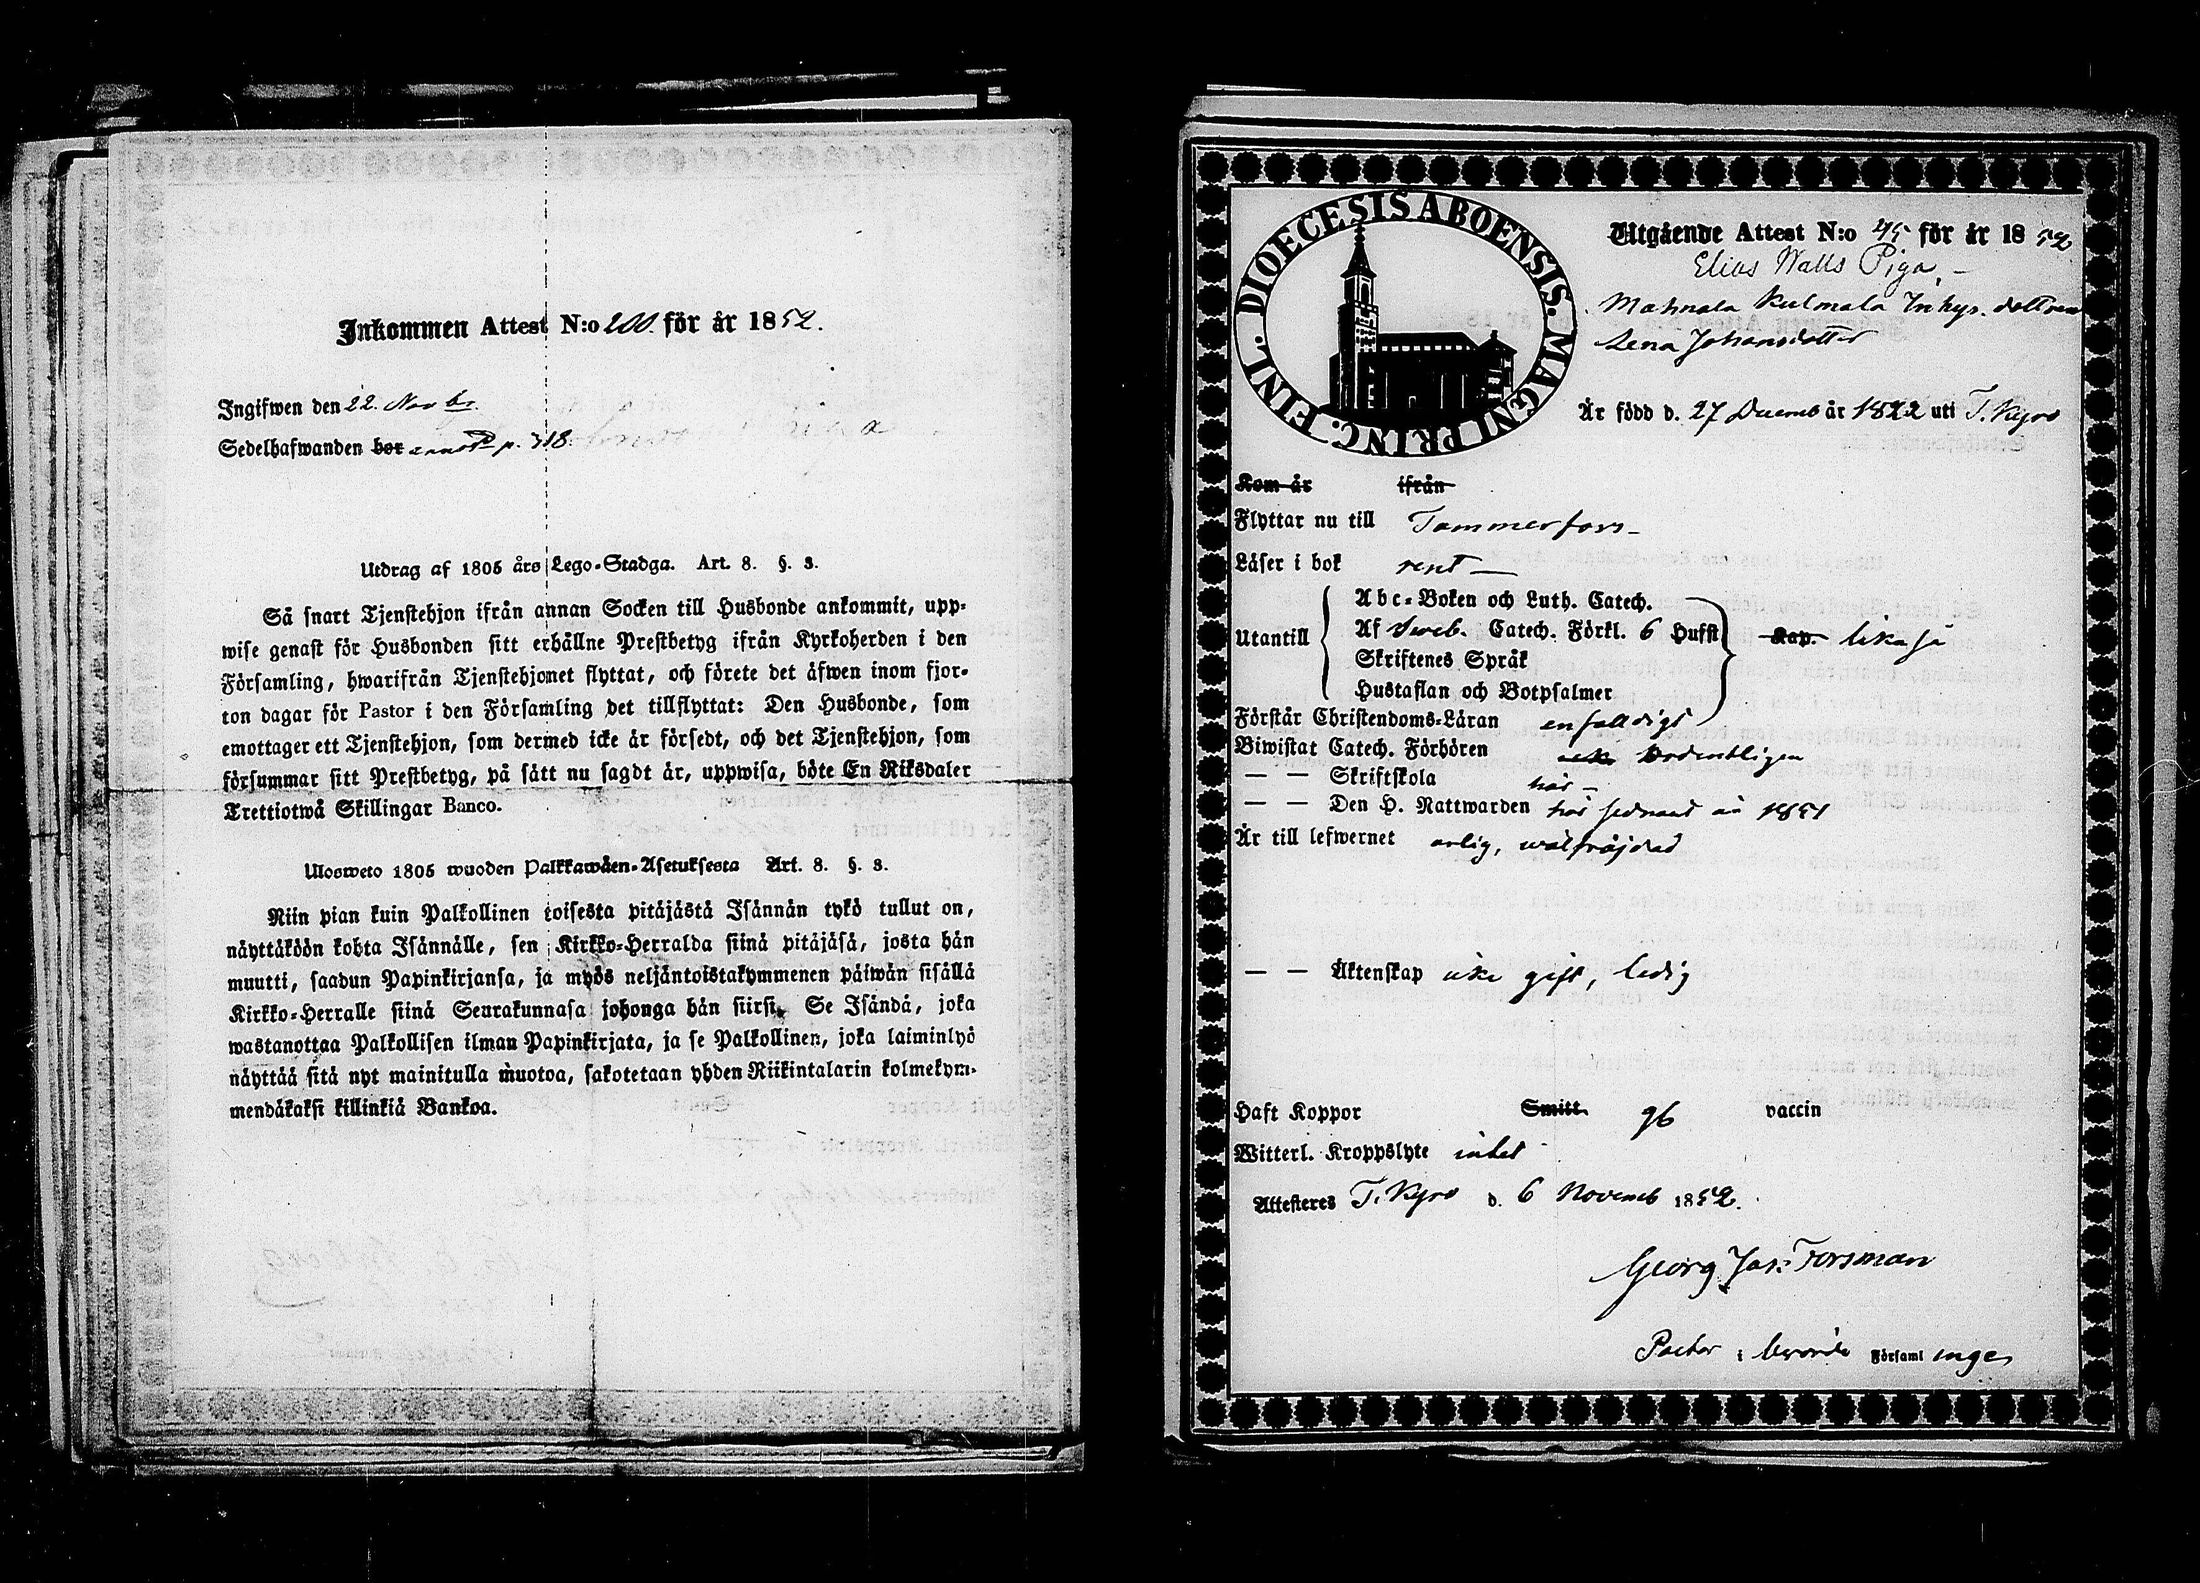 Inkommen Attest N:o 200. för år 1852.
Ingifwen den 22. Novbr.
Sedelhafwanden bor annot. p. 318.
Utdrag af 1805 års Lego-Stadga. Art. 8. §. 3.
Så snart Tjenstehjon ifrån annan Socken till Husbonde ankommit, upp-
wise genast för Husbonden sitt erhållne Prestbetyg ifrån Kyrkoherden i den
Församling, hwarifrån Tjenstehjonet flyttat, och förete det äfwen inom fjor-
ton dagar för Pastor i den Församling det tillflyttat: Den Husbonde, som
emottager ett Tjenstehjon, som dermed icke är försedt, och det Tjenstehjon, som
försummar sitt Prestbetyg, på sätt nu sagdt är, uppwisa, böte En Riksdaler
Trettiotwå Skillingar Banco.
Ulosweto 1805 wuoden Palkkawäen-Asetuksesta Art. 8. §. 3.
Niin pian kuin Palkollinen toisesta pitäjästä Isännän tykö tullut on,
näyttäköön kohta Isännälle, sen Kirkko-Herralda siinä pitäjäsä, josta hän
muutti, saadun Papinkirjansa, ja myös neljäntoistakymmenen päiwän sisällä
Kirkko-Herralle siinä Seurakunnasa johonga hän siirsi. Se Isändä, joka
wastanottaa Palkollisen ilman Papinkirjata, ja se Palkollinen, joka laiminlyö
näyttää sitä nyt mainitulla muotoa, sakotetaan yhden Riikintalarin kolmekym-
mendäkaksi killinkiä Bankoa.
DIOECESIS ABOENSIS. MAGNI PRINC. FINL.
Utgående Attest N:o 45 för år 1852
Elias Walls Piga
Mahnala Kulmala Inhys. dottren
Lena Johansdotter
Är född d. 27 Decemb år 1822 uti T. Kyro
Kom år ifrån
Flyttar nu till Tammerfors
Läser i bok rent
Utantill
Abc-Boken och Luth. Catech.
Af Sweb. Catech. Förkl. 6 Hufst Kap. likaså
Skriftenes Språk
Hustaflan och Botpsalmer
Förstår Christendoms-Läran enfaldigt
Biwistat Catech. Förhören ordentligen
— — Skriftskola här
— — Den H. Nattwarden här sednast år 1851
Är till lefwernet ärlig, wälfräjdad
— — Äktenskap icke gift, ledig
Haft Koppor Smitt. gb vaccin
Witterl. Kroppslyte intet
Attesteres T. Kyro d. 6 Novemb 1852.
Georg Jak: Forsman
Pastor i berörde Församlinge